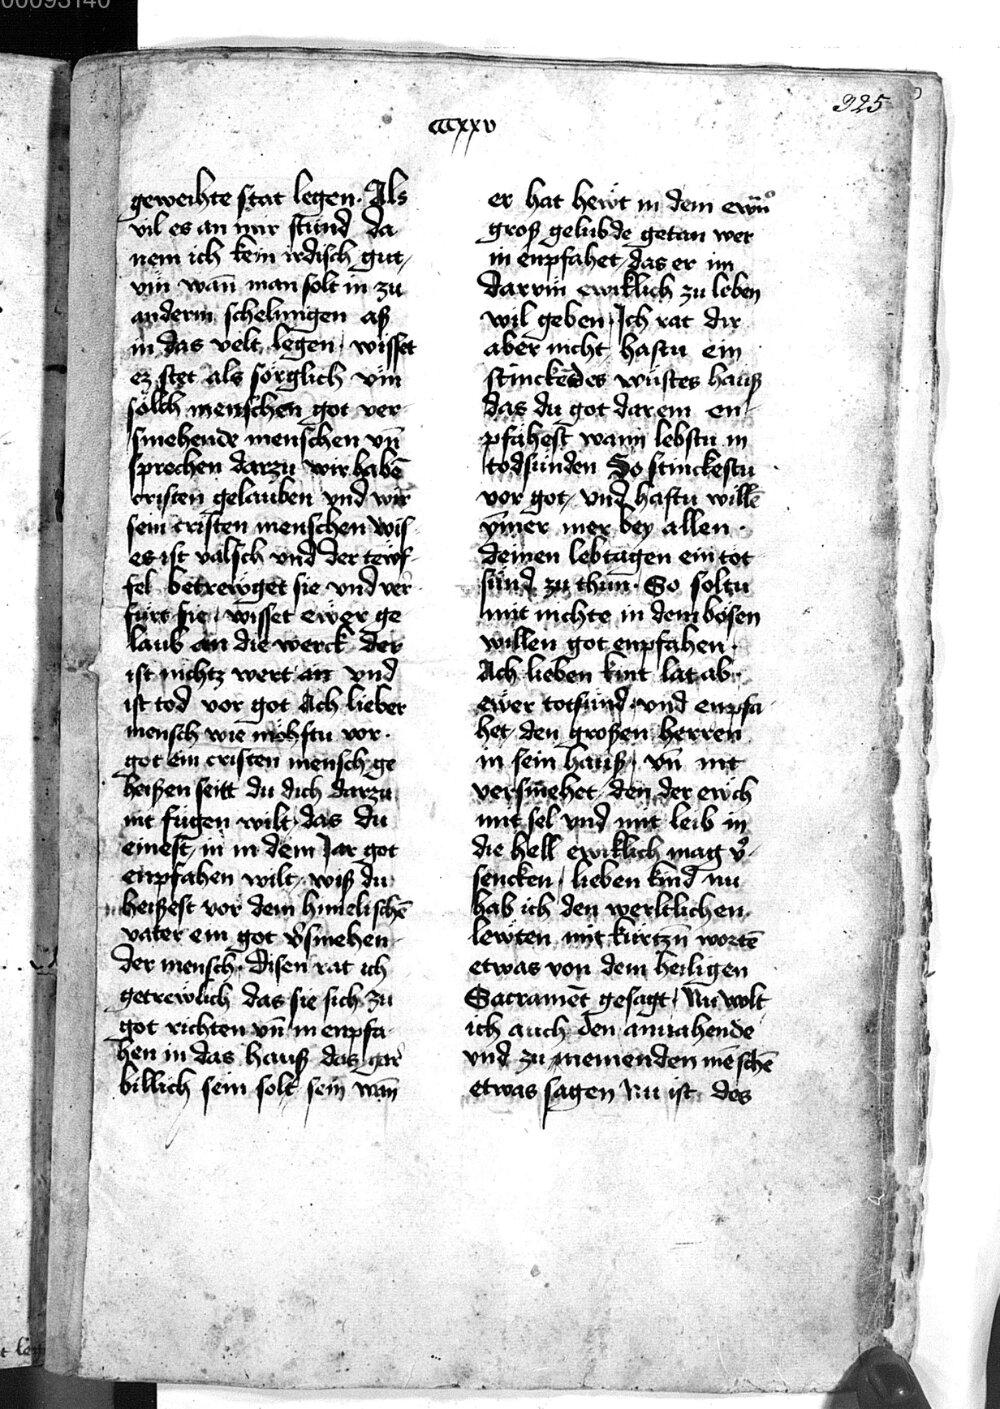 00093140
325
cccxxv
geweihte stat legen. Als
vil es an mir stund da
nem ich kein irdisch gut,
vm̄ wan̄ man solt in zu
anderm schelmigen aß
in das velt legen, wisset
ez stet als sörglich vm̄
sölch menschen got ver
smehende menschen vn̄
sprechen darzu wir habē
cristen gelauben vnd wir
sein cristen menschen wis
es ist valsch vnd der tewf
fel betrewget sie vnd ver
fürt sie, wisset ewer ge
laub an die werck der
ist nichtz wert an vnd
ist tod vor got Ach lieber
mensch wie möhstu vor
got ein cristen mensch ge
heißen seitt du dich darzu
nit fügen wilt, das du
einest, in in dem Jar got
enpfahen wilt, wiß du
heißest vor dem himelischē
vater ein got v̉smehen
der mensch. Disen rat ich
getrewlich das sie sich zu
got richten vn̄ in enpfa
hen in das hauß das gar
billich sein solt sein wan̄
er hat hewt in dem ewn̄º
groß gelubde getan wer
in enpfahet, das er im
darvm ewiklich zu leben
wil geben, Ich rat dir
aber nicht hastu ein
stinckēdes wüstes hauß
das du got darein en
pfahest wann lebstu in
todsünden So stinckestu
vor got, vnd hastu willē
ym̄er mer bey allen
deinen lebtagen ein tot
sünd zu thun. So soltu
mit nichte in dem bösen
willen got enpfahen.
Ach lieben kint lat ab
ewer totsünd, vnd enpfa
het den großen herren
in sein hauß, vn̄ nit
versmehet, den der ewch
mit sel vnd mit leib in
die hell ewiklich mag v̉
sencken, lieben kind nu
hab ich den werltlichen
lewten mit kurtzn̄ wortē
etwas von dem heiligen
Sacramēt gesagt, Nu wolt
ich auch den anuahende
vnd zu nemenden mēschē
etwas sagen Nu ist des